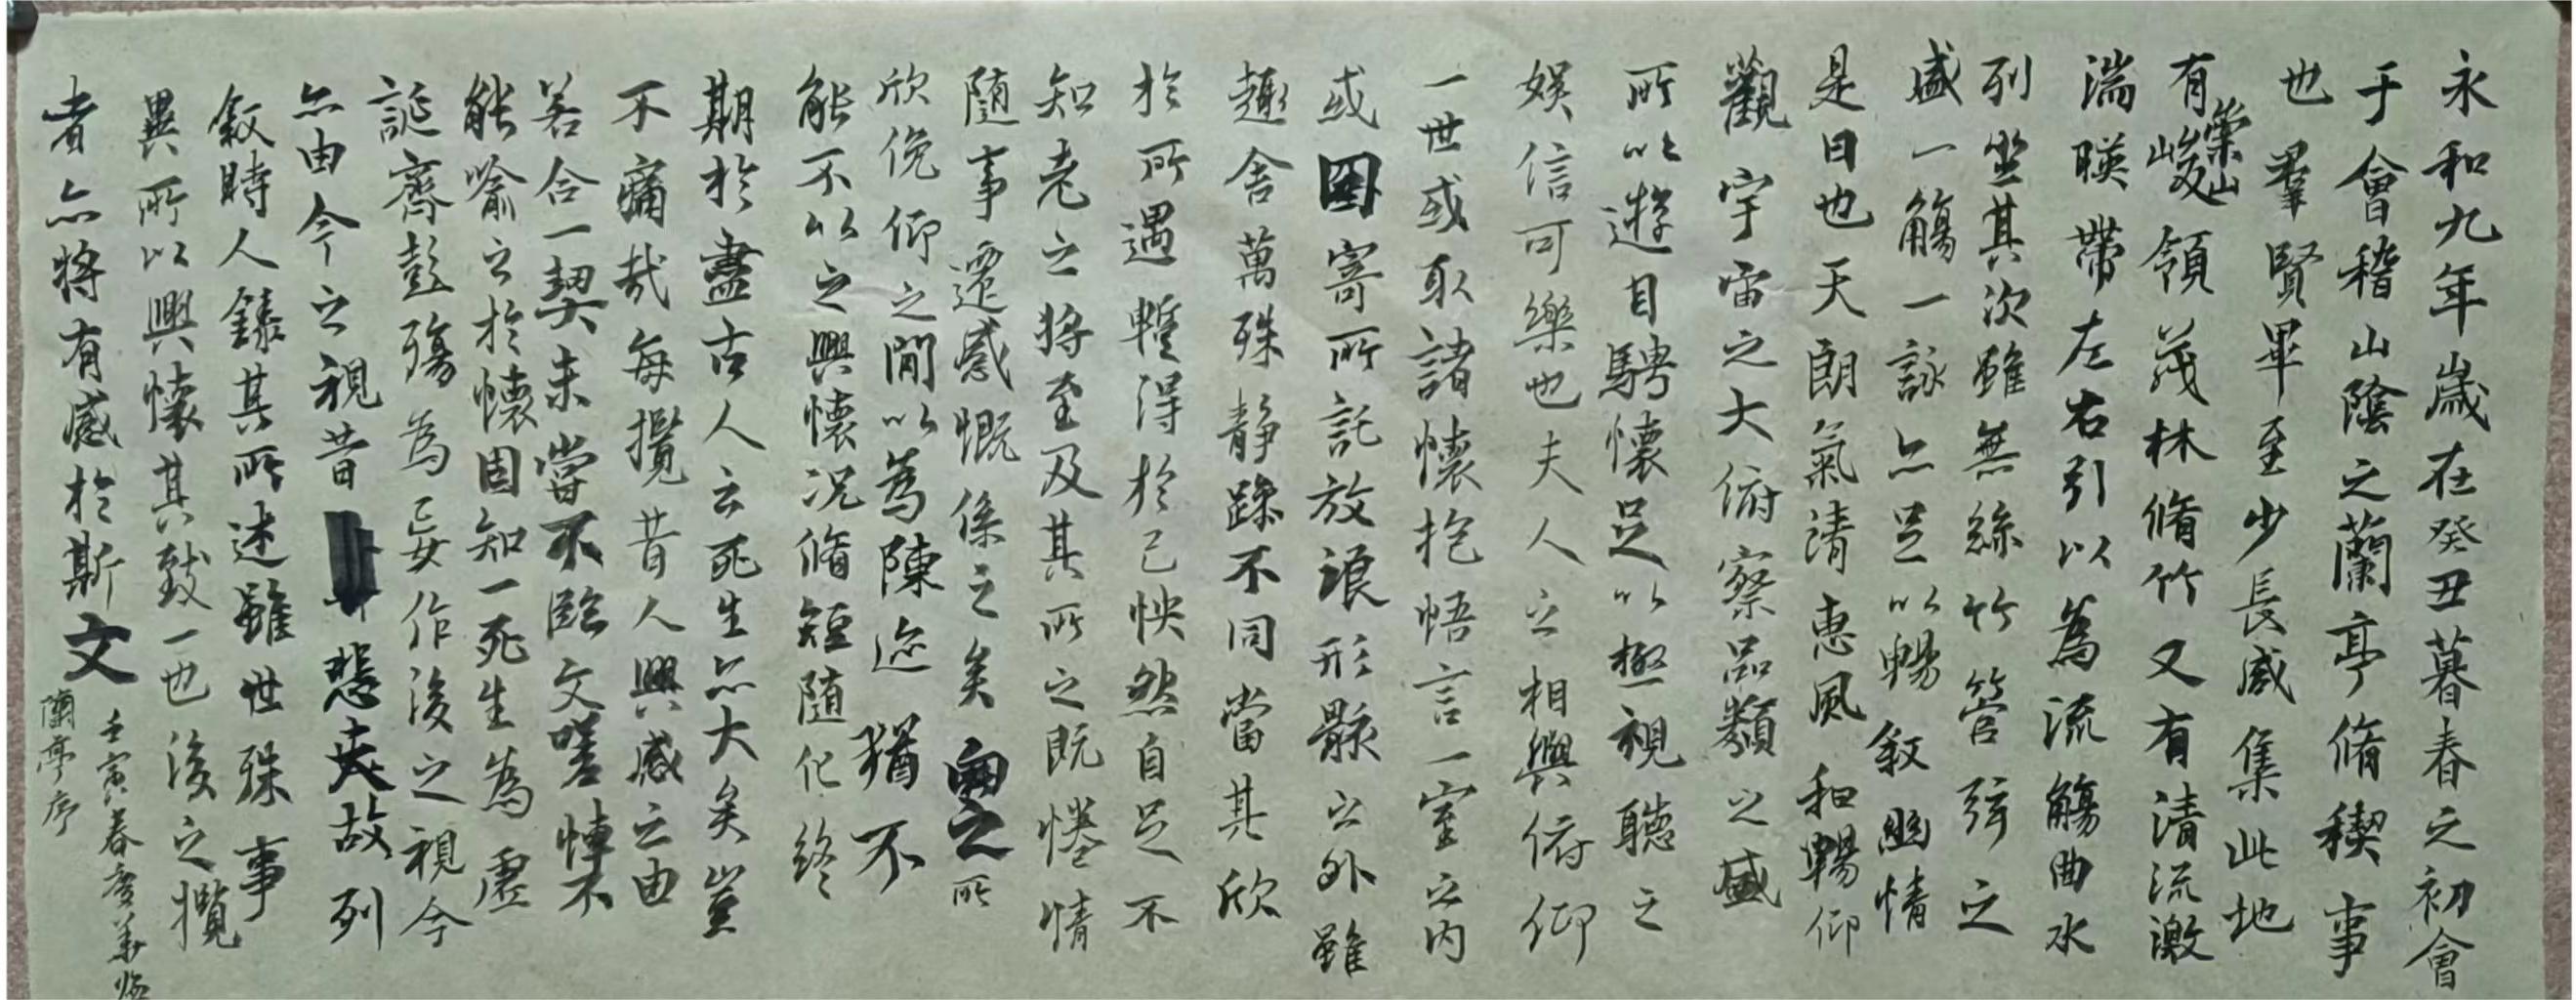 永和九年歲在癸丑暮春之初會
于會稽山陰之蘭亭脩稧事
也羣賢畢至少長咸集此地
有崇山峻領茂林脩竹又有清流激
湍暎帶左右引以為流觴曲水
列坐其次雖無絲竹管弦之
盛一觴一詠亦足以暢敘幽情
是日也天朗氣清惠風和暢仰
觀宇宙之大俯察品類之盛
所以遊目騁懷足以極視聽之
娛信可樂也夫人之相與俯仰
一世或取諸懷抱悟言一室之內
或因寄所託放浪形骸之外雖
趣舍萬殊靜躁不同當其欣
於所遇蹔得於己怏然自足不
知老之將至及其所之既惓情
隨事遷感慨係之矣向之所
欣俛仰之閒以為陳迹猶不
能不以之興懷況脩短隨化終
期於盡古人云死生亦大矣豈
不痛哉每攬昔人興感之由
若合一契未嘗不臨文嗟悼不
能喻之於懷固知一死生為虛
誕齊彭殤為妄作後之視今
亦由今之視昔悲夫故列
敘時人錄其所述雖世殊事
異所以興懷其致一也後之攬
者亦將有感於斯文
壬寅春
蘭亭序